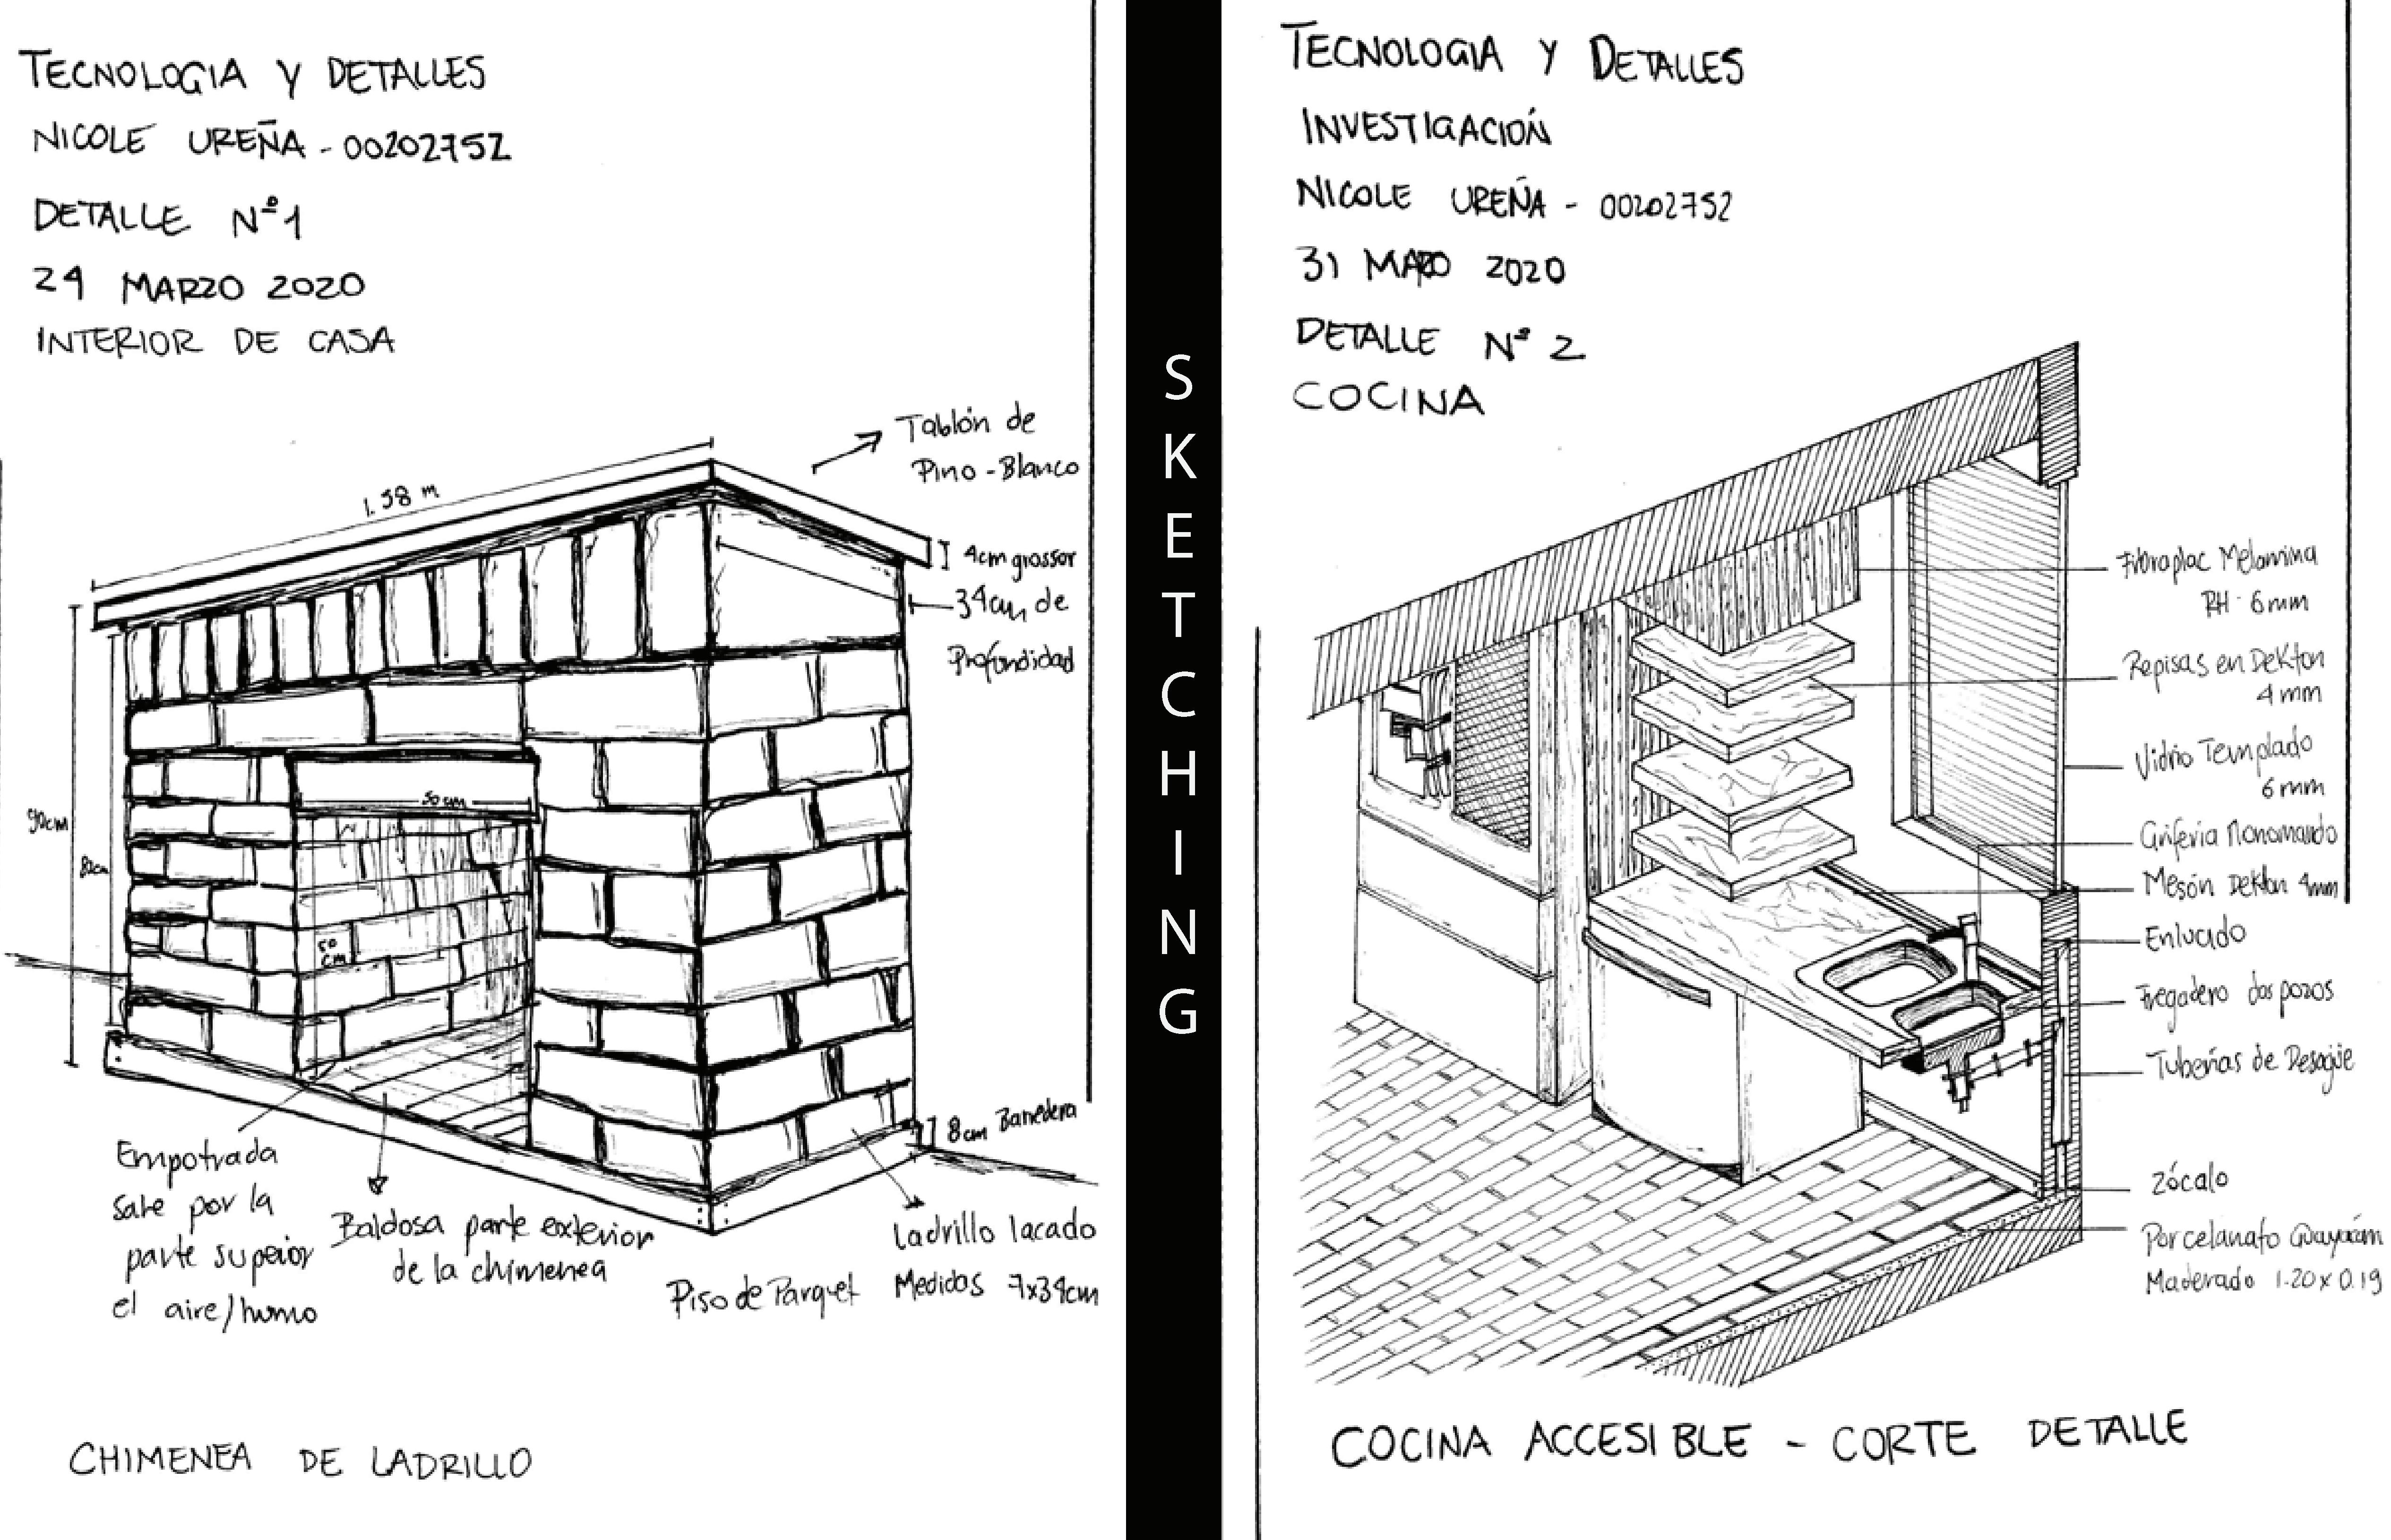 TECNOLOGIA Y DETALLES
NICOLE UREÑA - 00202752
DETALLE Nº1
24 MARZO 2020
INTERIOR DE CASA
Tablón de
Pino - Blanco
1.58 m
4cm grossor
34cm de
Profundidad
90cm
82cm
50 cm
50
cm
8cm Barredera
Empotrada
sale por la
parte superior
el aire/humo
Baldosa parte exterior
de la chimenea
Piso de Parquet
Ladrillo lacado
Medidas 7x34cm
CHIMENEA DE LADRILLO
SKETCHING
TECNOLOGIA Y DETALLES
INVESTIGACIÓN
NICOLE UREÑA - 00202752
31 MARZO 2020
DETALLE Nº 2
COCINA
Fibroplac Melamina
RH - 6mm
Repisas en Dekton
4mm
Vidrio Templado
6mm
Griferia Monomando
Mesón Dekton 4mm
Enlucido
Fregadero dos pozos
Tuberías de Desagüe
Zócalo
Porcelanato
Maderado 1.20 x 0.19
COCINA ACCESIBLE - CORTE DETALLE